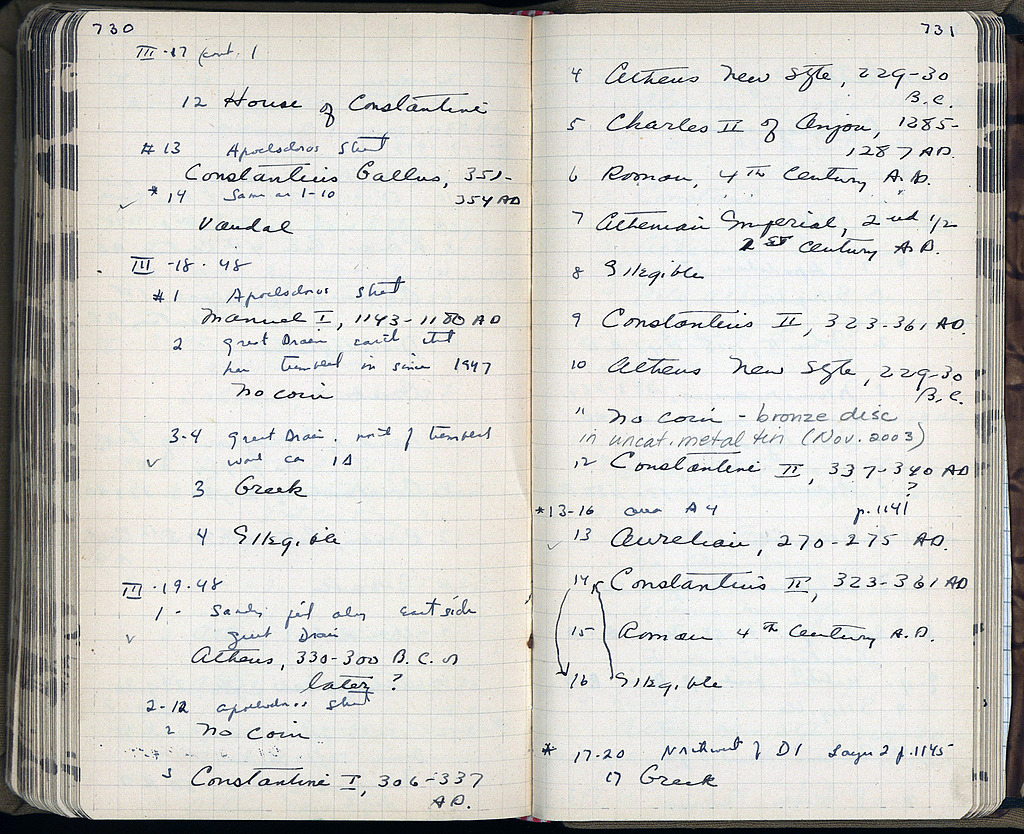 730
III-17 cont. 1
12 House of Constantine
#13 Apollodoros Street
Constantius Gallus, 351-
354 AD
* 14 Same as 1-10
Vandal
III-18-48
#1 Apollodoros Street
Manuel I, 1143-1180 AD
2 Great Drain earth that
has tumbled in since 1947
No coin
3-4 Great Drain.
3 Greek
4 Illegible
III-19-48
1- Sandy east side
Great Drain
Athens, 330-300 B.C. or
later ?
2-12 Apollodoros Street
2 No coin
3 Constantine I, 306-337
AD.
731
4 Athens New Style, 229-30
B.C.
5 Charles II of Anjou, 1285-
1287 AD.
6 Roman, 4th Century A.D.
7 Athenian Imperial, 2nd 1/2
2st Century A.D.
8 Illegible
9 Constantius II, 323-361 AD.
10 Athens New Style, 229-30
B.C.
" No coin - bronze disc
in uncat. metal tin (Nov. 2003)
12 Constantine II, 337-340 AD
?
*13-16 area A4 p.1141
13 Aurelian, 270-275 AD.
14 Constantius II, 323-361 AD
15 Roman 4th Century A.D.
16 Illegible
* 17-20 Northwest of D1 Layer 2 p.1145
17 Greek